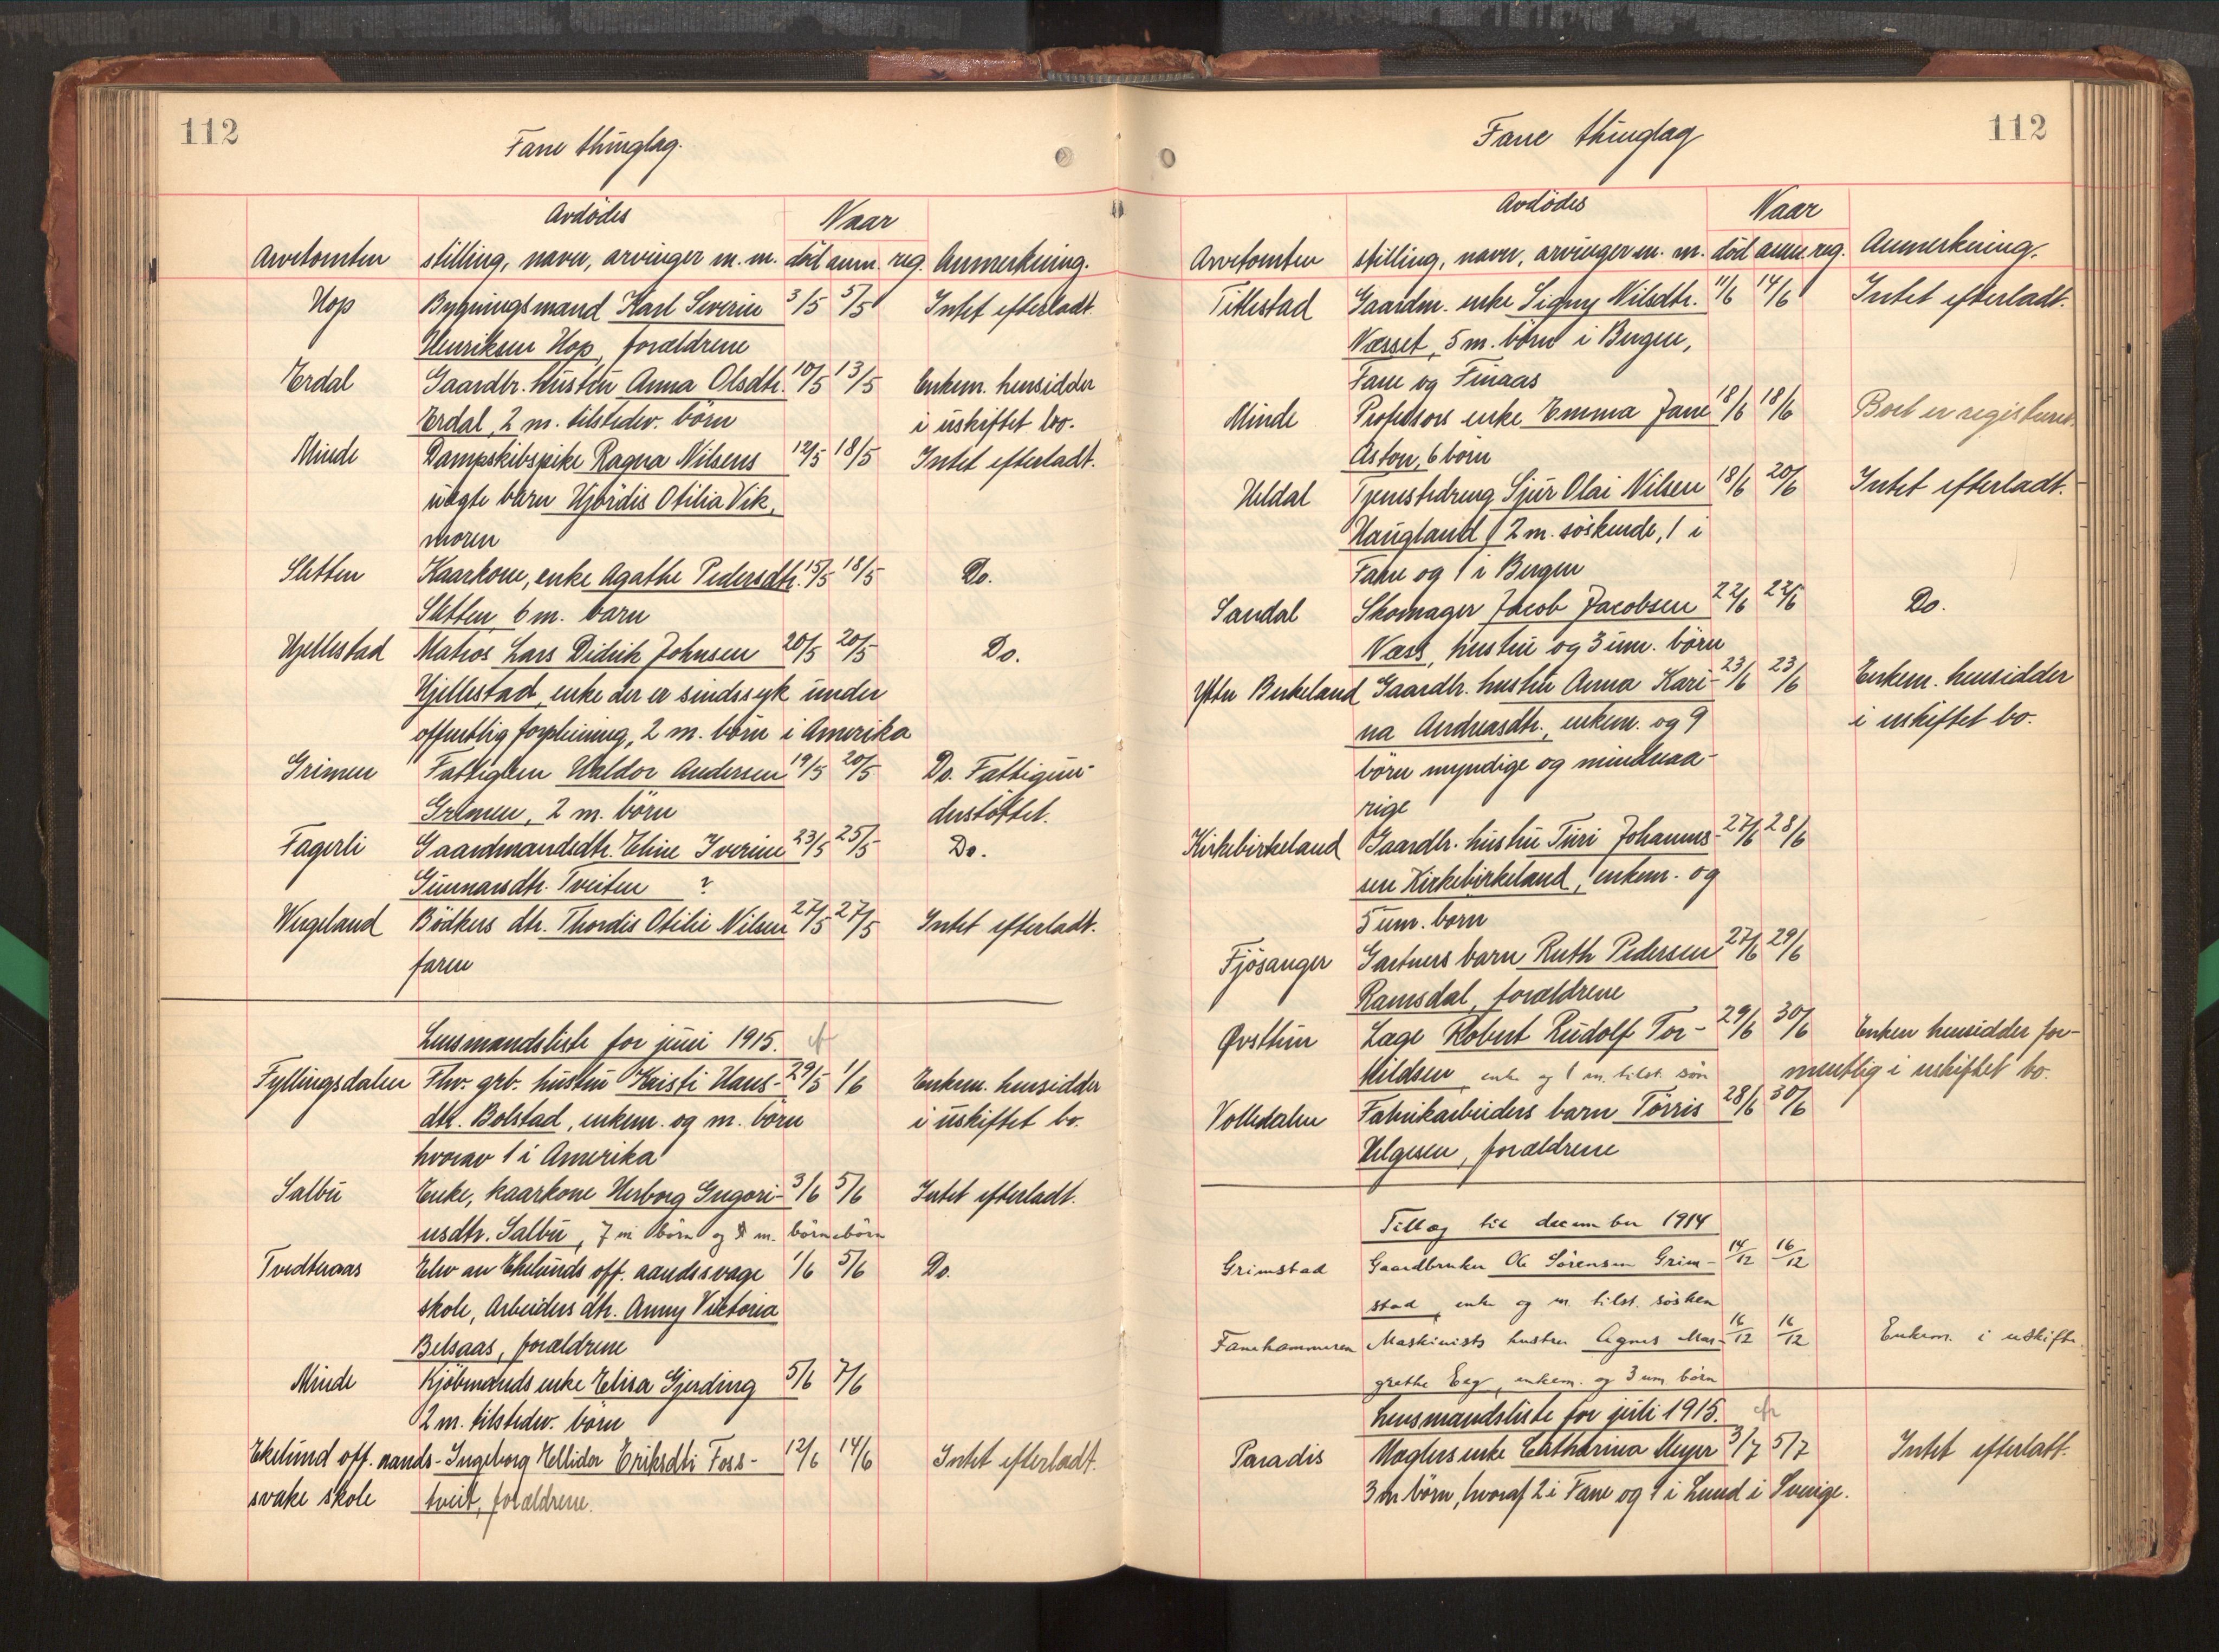 112
Fane thinglag.
Avdødes
Naar
Arvetomten stilling, navn, arvinger m. m. död anm. reg. Anmerkning.
Hop Bygningsmand Karl Severin 3/5 5/5 Intet efterladt.
Henriksen Hop, forældrene
Erdal Gaardbr. hustru Anna Olsdtr. 10/5 13/5 Enkem. hensidder
Erdal, 2 m. tilstedev. börn i uskiftet bo.
Minde Dampskibspike Ragna Nilsens 12/5 18/5 Intet efterladt.
uægte barn Hjördis Otilia Vik,
moren
Sletten Kaarkone, enke Agathe Pedersdtr. 15/5 18/5 Do.
Sletten 6 m. barn
Hjellestad Matros Lars Didrik Johnsen 20/5 20/5 Do.
Hjellestad, enke der er sindssyk under
offentlig forpleining, 2 m. börn i Amerika
Grimen Fattiglem Haldor Andersen 19/5 20/5 Do. Fattigun-
Grimen, 2 m. börn derstöttet.
Fagerli Gaardmandsdtr. Eline Iverine 23/5 25/5 Do.
Gunnarsdtr. Tveiten ?
Wergeland Bödkers dtr. Thordis Otilie Nilsen 27/5 27/5 Intet efterladt.
faren
Lensmandsliste for juni 1915. cfr
Fyllingsdalen Fhv. grb. hustru Kristi Hans- 29/5 1/6 Enkem. hensidder
dtr. Bolstad, enkem. og m. börn i uskiftet bo.
hvorav 1 i Amerika
Salbu Enke, kaarkone Herborg Gregori- 3/6 5/6 Intet efterladt.
usdtr. Salbu, 7 m börn og m. börnebörn
Tvedteraas Elev av Ekelunds off. aandssvage 1/6 5/6 Do.
skole, Arbeiders dtr. Anny Viktoria
Belsaas, forældrene
Minde Kjöbmands enke Elisa Gjerding 5/6 7/6
2 m. tilstedev. börn
Ekelund off. aands- Ingeborg Ellida Eriksdtr Foss- 12/6 14/6 Intet efterladt.
svake skole tveit, forældrene.
112
Fane thinglag
Avdödes
Naar
Arvetomten stilling, navn, arvinger m. m. död anm. reg. Anmerkning.
Titlestad Gaardm. enke Signy Nilsdtr. 11/6 14/6 Intet efterladt.
Næsset, 5 m. börn i Bergen,
Fane og Finaas
Minde Professors enke Emma Jane 18/6 18/6 Boet er registreret.
Aston, 6 börn
Heldal Tjenestedreng Sjur Olai Nilsen 18/6 20/6 Intet efterladt.
Haugland, 2 m. söskende, 1 i
Fane og 1 i Bergen
Sandal Skomager Jacob Jacobsen 22/6 22/6 Do.
Næss, hustru og 3 um. börn
Ytre Birkeland Gaardbr. hustru Anna Kari- 23/6 23/6 Enkem. hensidder
na Andreasdtr., enkem. og 9 i uskiftet bo.
börn myndige og mindreaa-
rige
Kirkebirkeland Gaardbr. hustru Turi Johannes- 27/6 28/6
sen Kirkebirkeland, enkem. og
5 um. barn
Fjösanger Gartners barn Ruth Pedersen 27/6 29/6
Ramsdal, forældrene
Øvstthun Læge Robert Rudolf Tor- 29/6 30/6 Enken hensidder for-
Mildsen, enke og 1 m. tilst. sön mentlig i uskiftet bo.
Volledalen Fabrikarbeiders barn Törris 28/6 30/6
Helgesen, forældrene
Tillæg til december 1914
Grimstad Gaardbruker Ole Sörensen Grim- 14/12 16/12
stad, enke og m. tilst. sösken
Fanehammeren Maskinists hustru Agnes Mar- 16/12 16/12 Enkem. i uskifte.
grethe Eeg, enkem. og 3 um. börn
Lensmandsliste for juli 1915. cfr
Paradis Mæglers enke Catharina Meyer 3/7 5/7 Intet efterladt.
3 m börn, hvoraf 2 i Fane og 1 i Lund i Sverige.